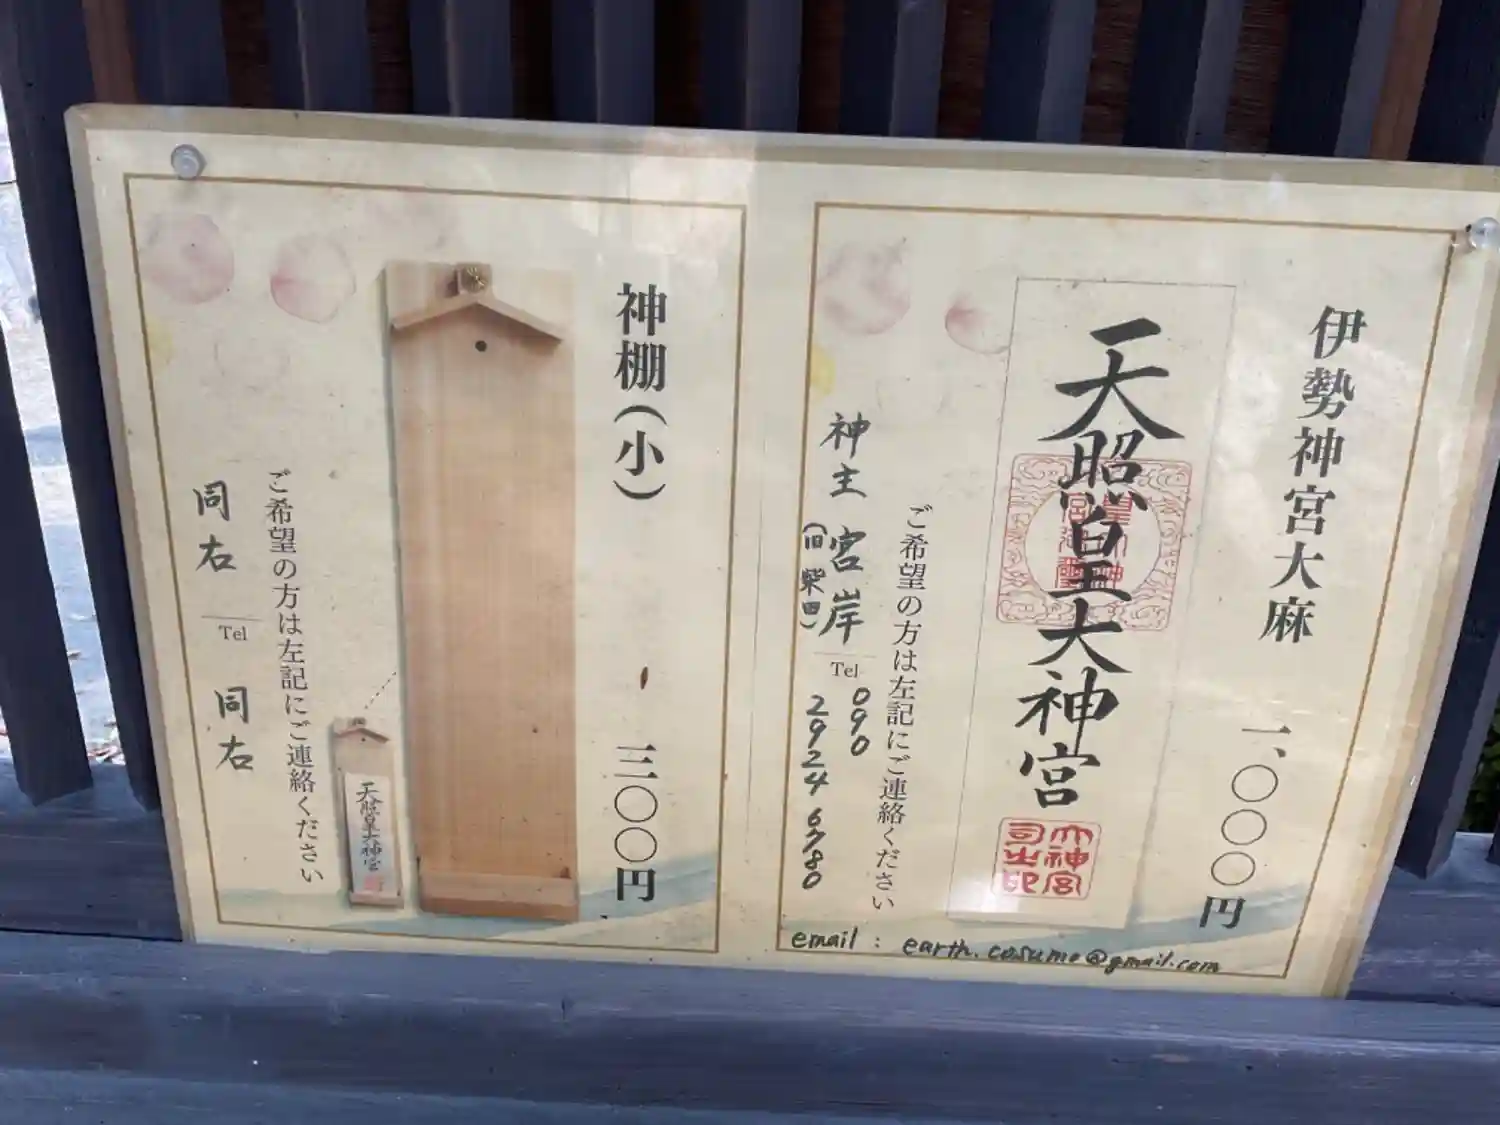 伊勢神宮大麻
一、〇〇〇円
天照皇大神宮
大神宮
司之印
ご希望の方は左記にご連絡ください
神主 宮岸
(旧 柴田)
Tel
090
2924 6780
email : earth.cosumo@gmail.com
神棚(小)
三〇〇円
天照皇大神宮
ご希望の方は左記にご連絡ください
同右
Tel
同右